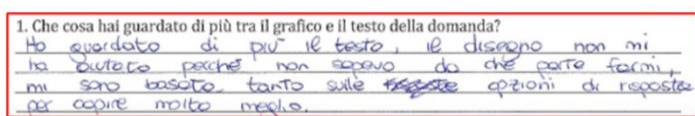 1. Che cosa hai guardato di più tra il grafico e il testo della domanda?
Ho guardato di più il testo, il disegno non mi
ha aiutato perché non sapevo da che parte farmi,
mi sono basata tanto sulle opzioni di risposta
per capire molto meglio.